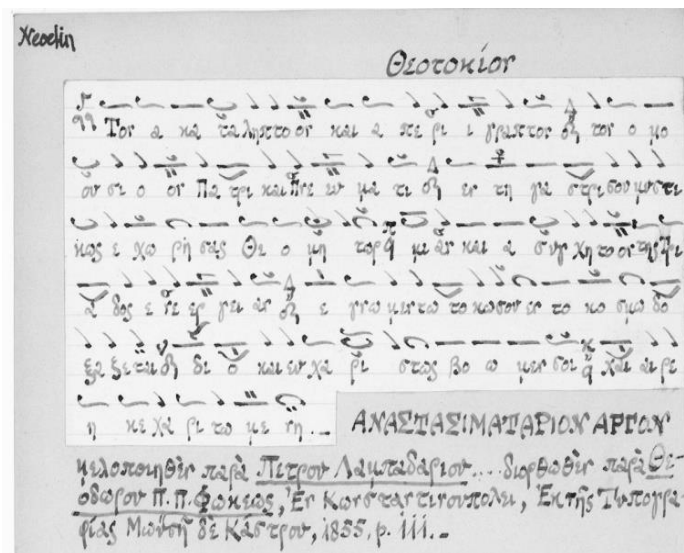 Θεοτοκίον
Τον α κα τα ληπτο ον και α πε ρι ι γραπτον τον ο μο
ού σι ο ον Πα τρι και Πνε ευ μα τι εν τη γα στρι σου μυστι
κώς ε χω ρη σας Θε ο μη τορ μι αν και α συγ χη το ον της Τρι
ά δος ε νε ερ γει αν ε γνω μεν τω το κω σου εν το κο σμω δο
ξα ζε ται δι ό και ευ χα ρι στως βο ω μεν σοι χαι αι ρε
η κε χα ρι τω με νη._
ΑΝΑΣΤΑΣΙΜΑΤΑΡΙΟΝ ΑΡΓΟΝ
μελοποιηθὲν παρὰ Πέτρου Λαμπαδαρίου.... διορθωθὲν παρὰ Θε-
οδώρου Π.Π. Φωκέως, Ἐν Κωνσταντινουπόλει, Ἐκ τῆς Τυπογρα-
φίας Μωϋσῆ δὲ Κάστρου, 1855, p. 111._